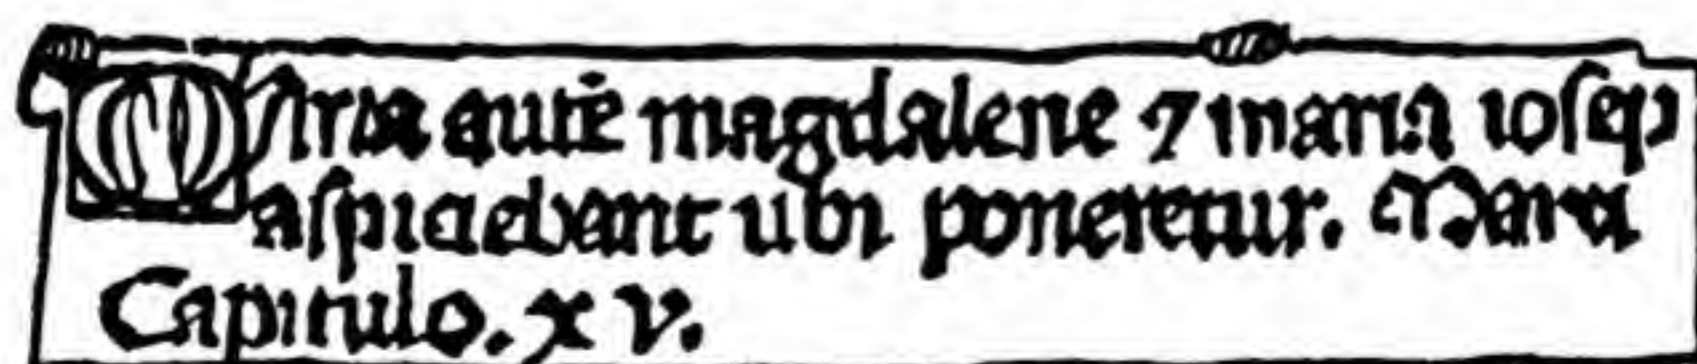 MAria autē magdalene ⁊ maria ioseph
aspiciebant ubi poneretur. Marci
Capitulo. xv.